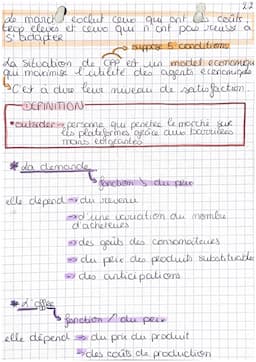 2.2
Le marché exclut ceux qui ont des coûts
trop élevés et ceux qui n'ont pas réussi à
s'adapter
suppose 5 conditions
La situation de CPP est un modèle économique
qui maximise l'utilité des agents économiques
C'est à dire leur niveau de satisfaction.
DÉFINITION
* outsider → personne qui perche le marché sur
les plateformes grâce aux barrières
moins exigeantes
* La demande
fonction ↘ du prix
elle dépend ⇒ du revenu
⇒ d'une variation du nombre
d'acheteurs
⇒ des goûts des consomateurs
⇒ du prix des produits substituables
⇒ des anticipations
* L'offre
fonction ↗ du prix
elle dépend ⇒ du prix du produit
⇒ des coûts de production